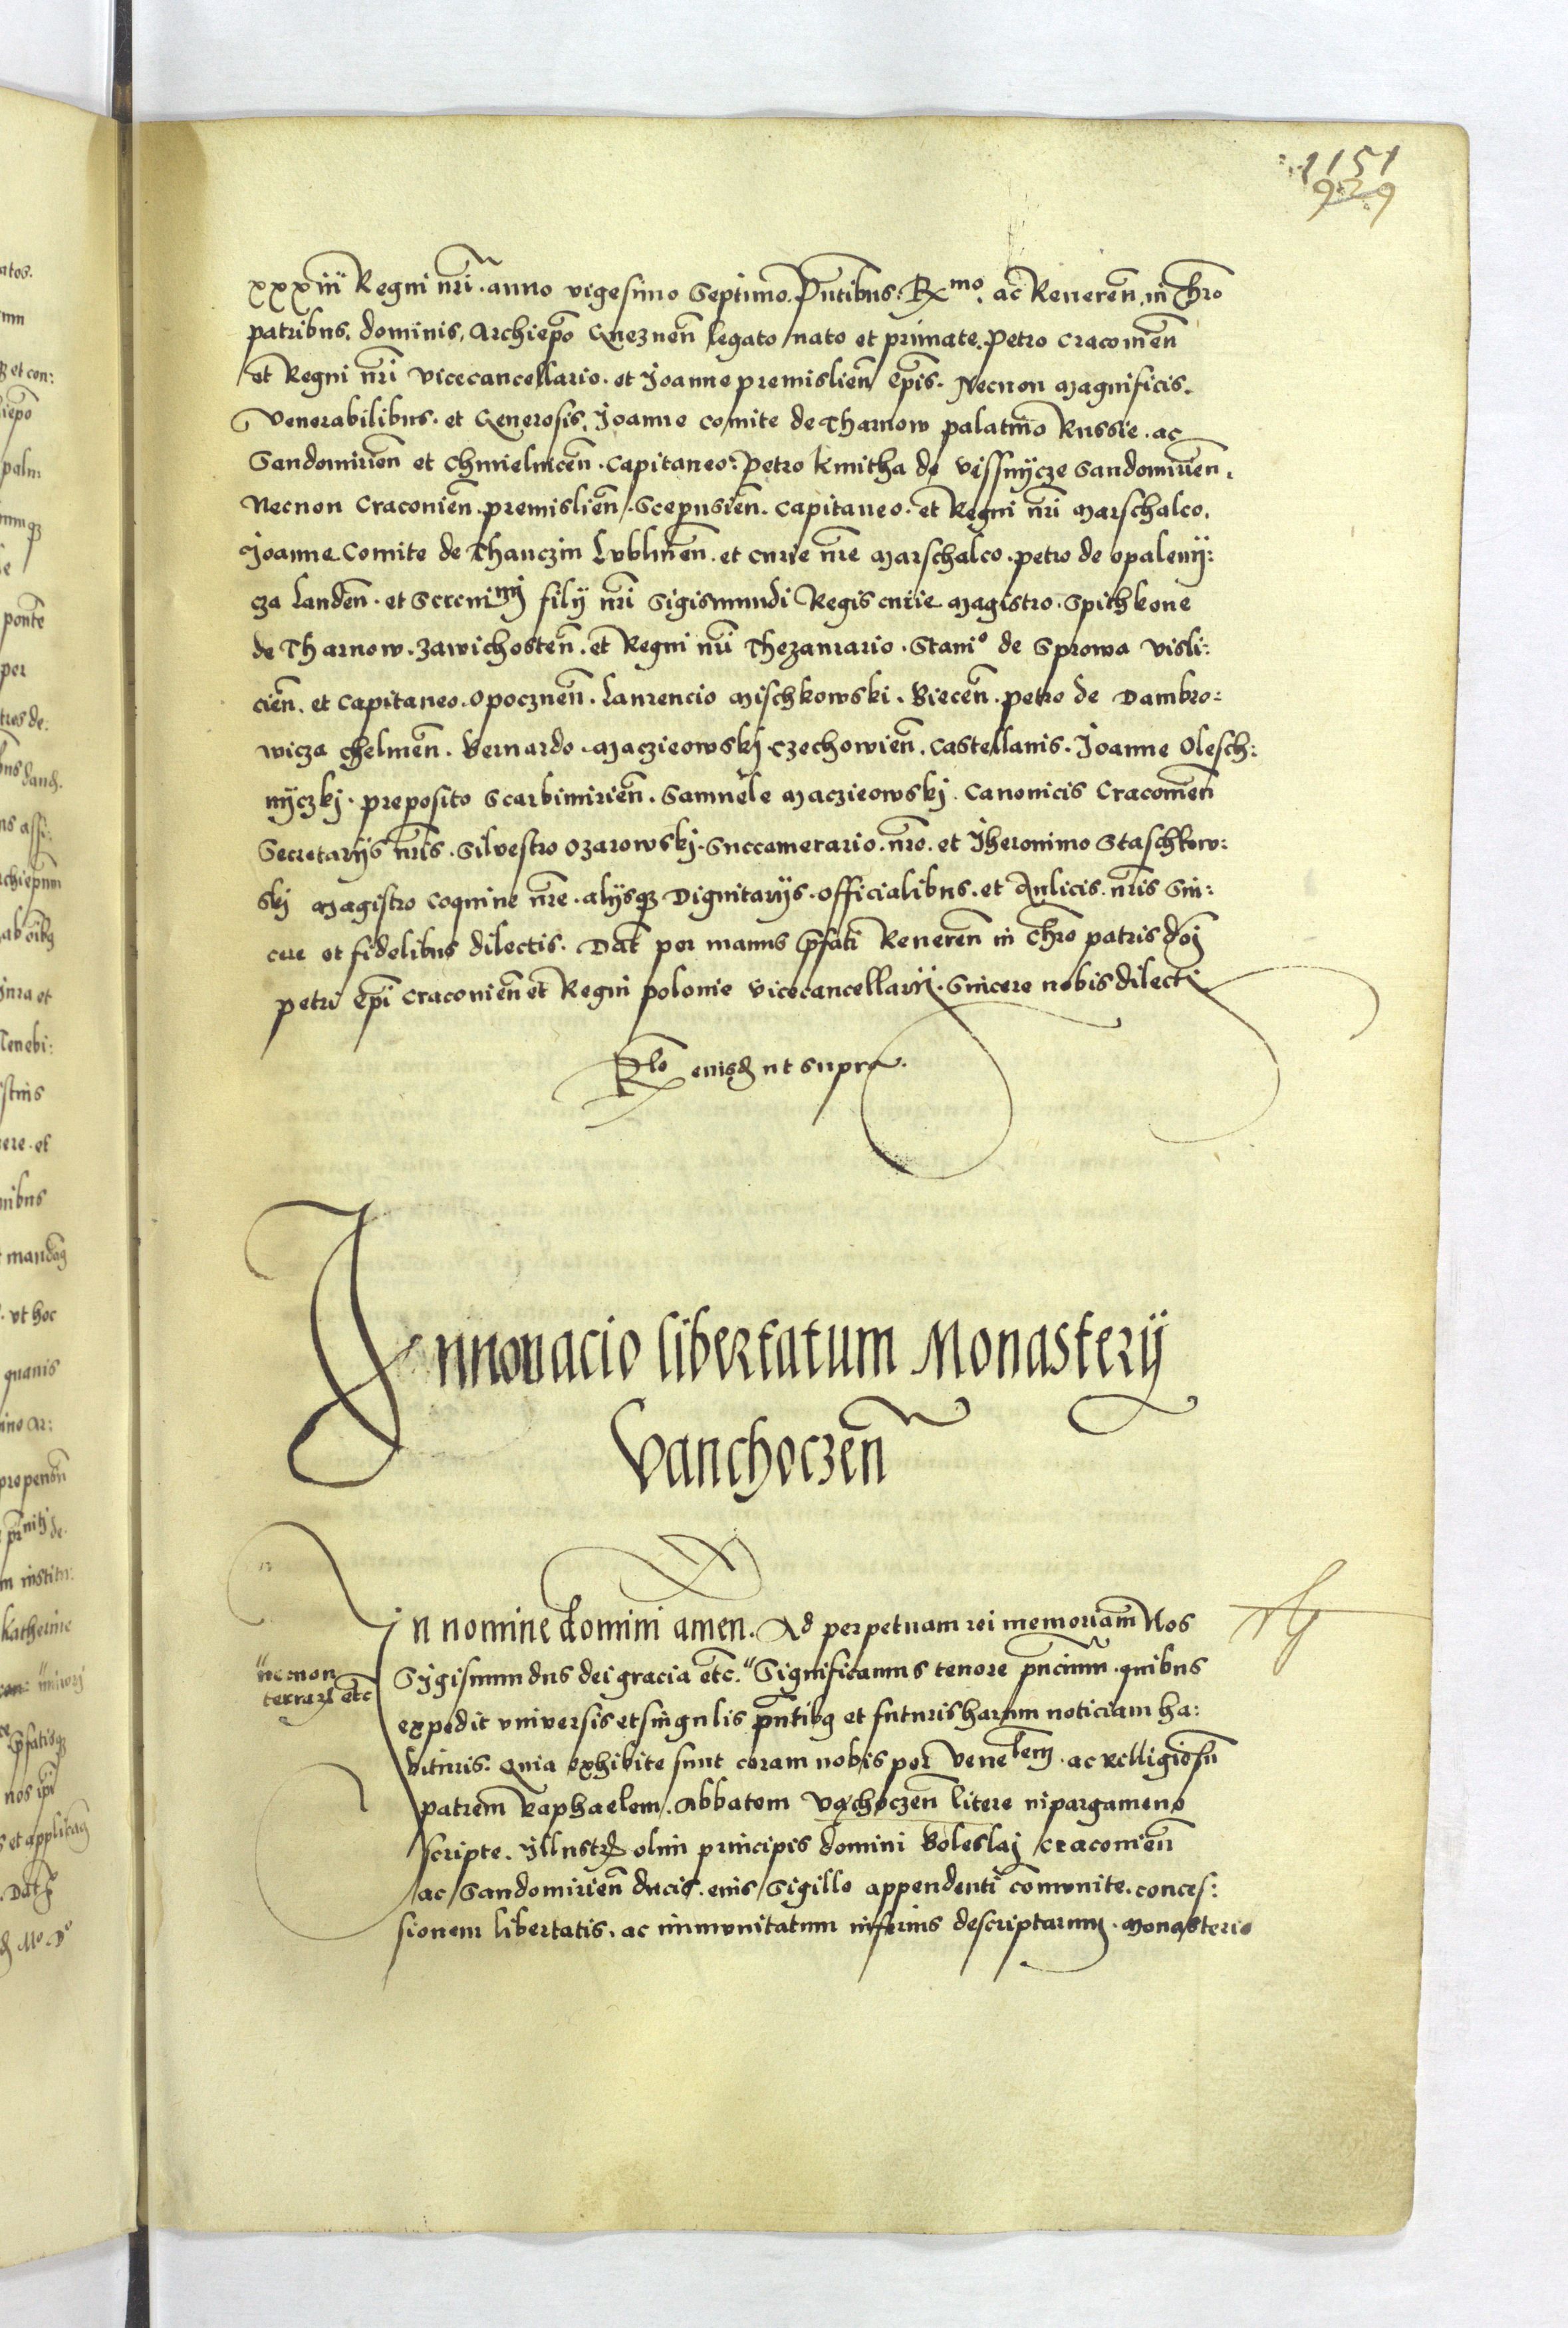 1151
929
xxxiii Regni nr̃i anno vigesimo Septimo. Pñtibus. Rxmo. ac Reueren̄. in chr̃o
patribus. dominis. Archiepõ Gneznen̄ legato nato et primate. Petro Cracouien̄
et Regni nr̃i vicecancellario. et Joanne premislien̄ ep̃is. Necnon Magnificis.
Venerabilibus. et Generosis. Joanne comite de Tharnow palatino Russie. ac
Sandomirien̄ et Chmielnicen̄. Capitaneo: Petro Kmitha de Vissnycze Sandomirien̄.
Necnon Craconien̄. premislien̄. Scepusien̄. Capitaneo. et Regni nr̃i Marschalco.
Joanne Comite de Thanczin Lublinen̄. et curie nr̃e Marschalco. petro de opaleny:
cza Landen̄. et Serenimj filij nr̃i Sigismundi Regis curie Magistro. Spithkone
de Tharnow. Zawichosten̄. et Regni nr̃i Thezaurario. Stanio de Sprowa Visli:
cien̄. et Capitaneo. Opocznen̄. Laurencio Mischkowski. Biecen̄. petro de Dambro:
wicza Chelmen̄. Bernardo. Maczieowskj. Czechowien̄. Castellanis. Joanne Olesch:
nyczkj. preposito Scarbimirien̄. Samuele Maczieowskj. Canonicis Cracouien̄
Secretarijs nr̃is. Siluestro Ozarowskj. Succamerario. nr̃o. et Jheronimo Staschkow:
skj Magistro coquine nr̃e. alijsq̃ Dignitarijs. officialibus. et Aulicis. nr̃is Sin:
cere et fidelibus dilectis. Dat̃ per manus p̃fati Reueren̄ in chr̃o patris dnĩ
petri Epĩ Craconien̄ et Regni polonie Vicecancellarij. Sincere nobis dilectj
Rlo eiusd̃ ut supra.
Innouacio libertatum Monasterij
Vanchoczen̄
In nomine domini amen. Ad perpetuam rei memoriam̄ Nos
"necnon
terrarũ et̃c
Sygismundus dei gracia et̃c." Significamus tenore pñcium. quibus
expedit vniuersis et singulis pñtibꝫ et futuris harum noticiam ha:
bituris. Quia exhibite sunt coram nobis per Venelem. ac relligiosũ
patrem̄ Raphaelem. Abbatem Vąchoczen̄ litere in pargameno
scripte. Illustrꝫ olim principis domini Boleslaj Cracouien̄
ac Sandomirien̄ ducis. eius Sigillo appendenti com̄unite. conces:
sionem libertatis. ac immunitatum inferius descriptarum. Monasterio